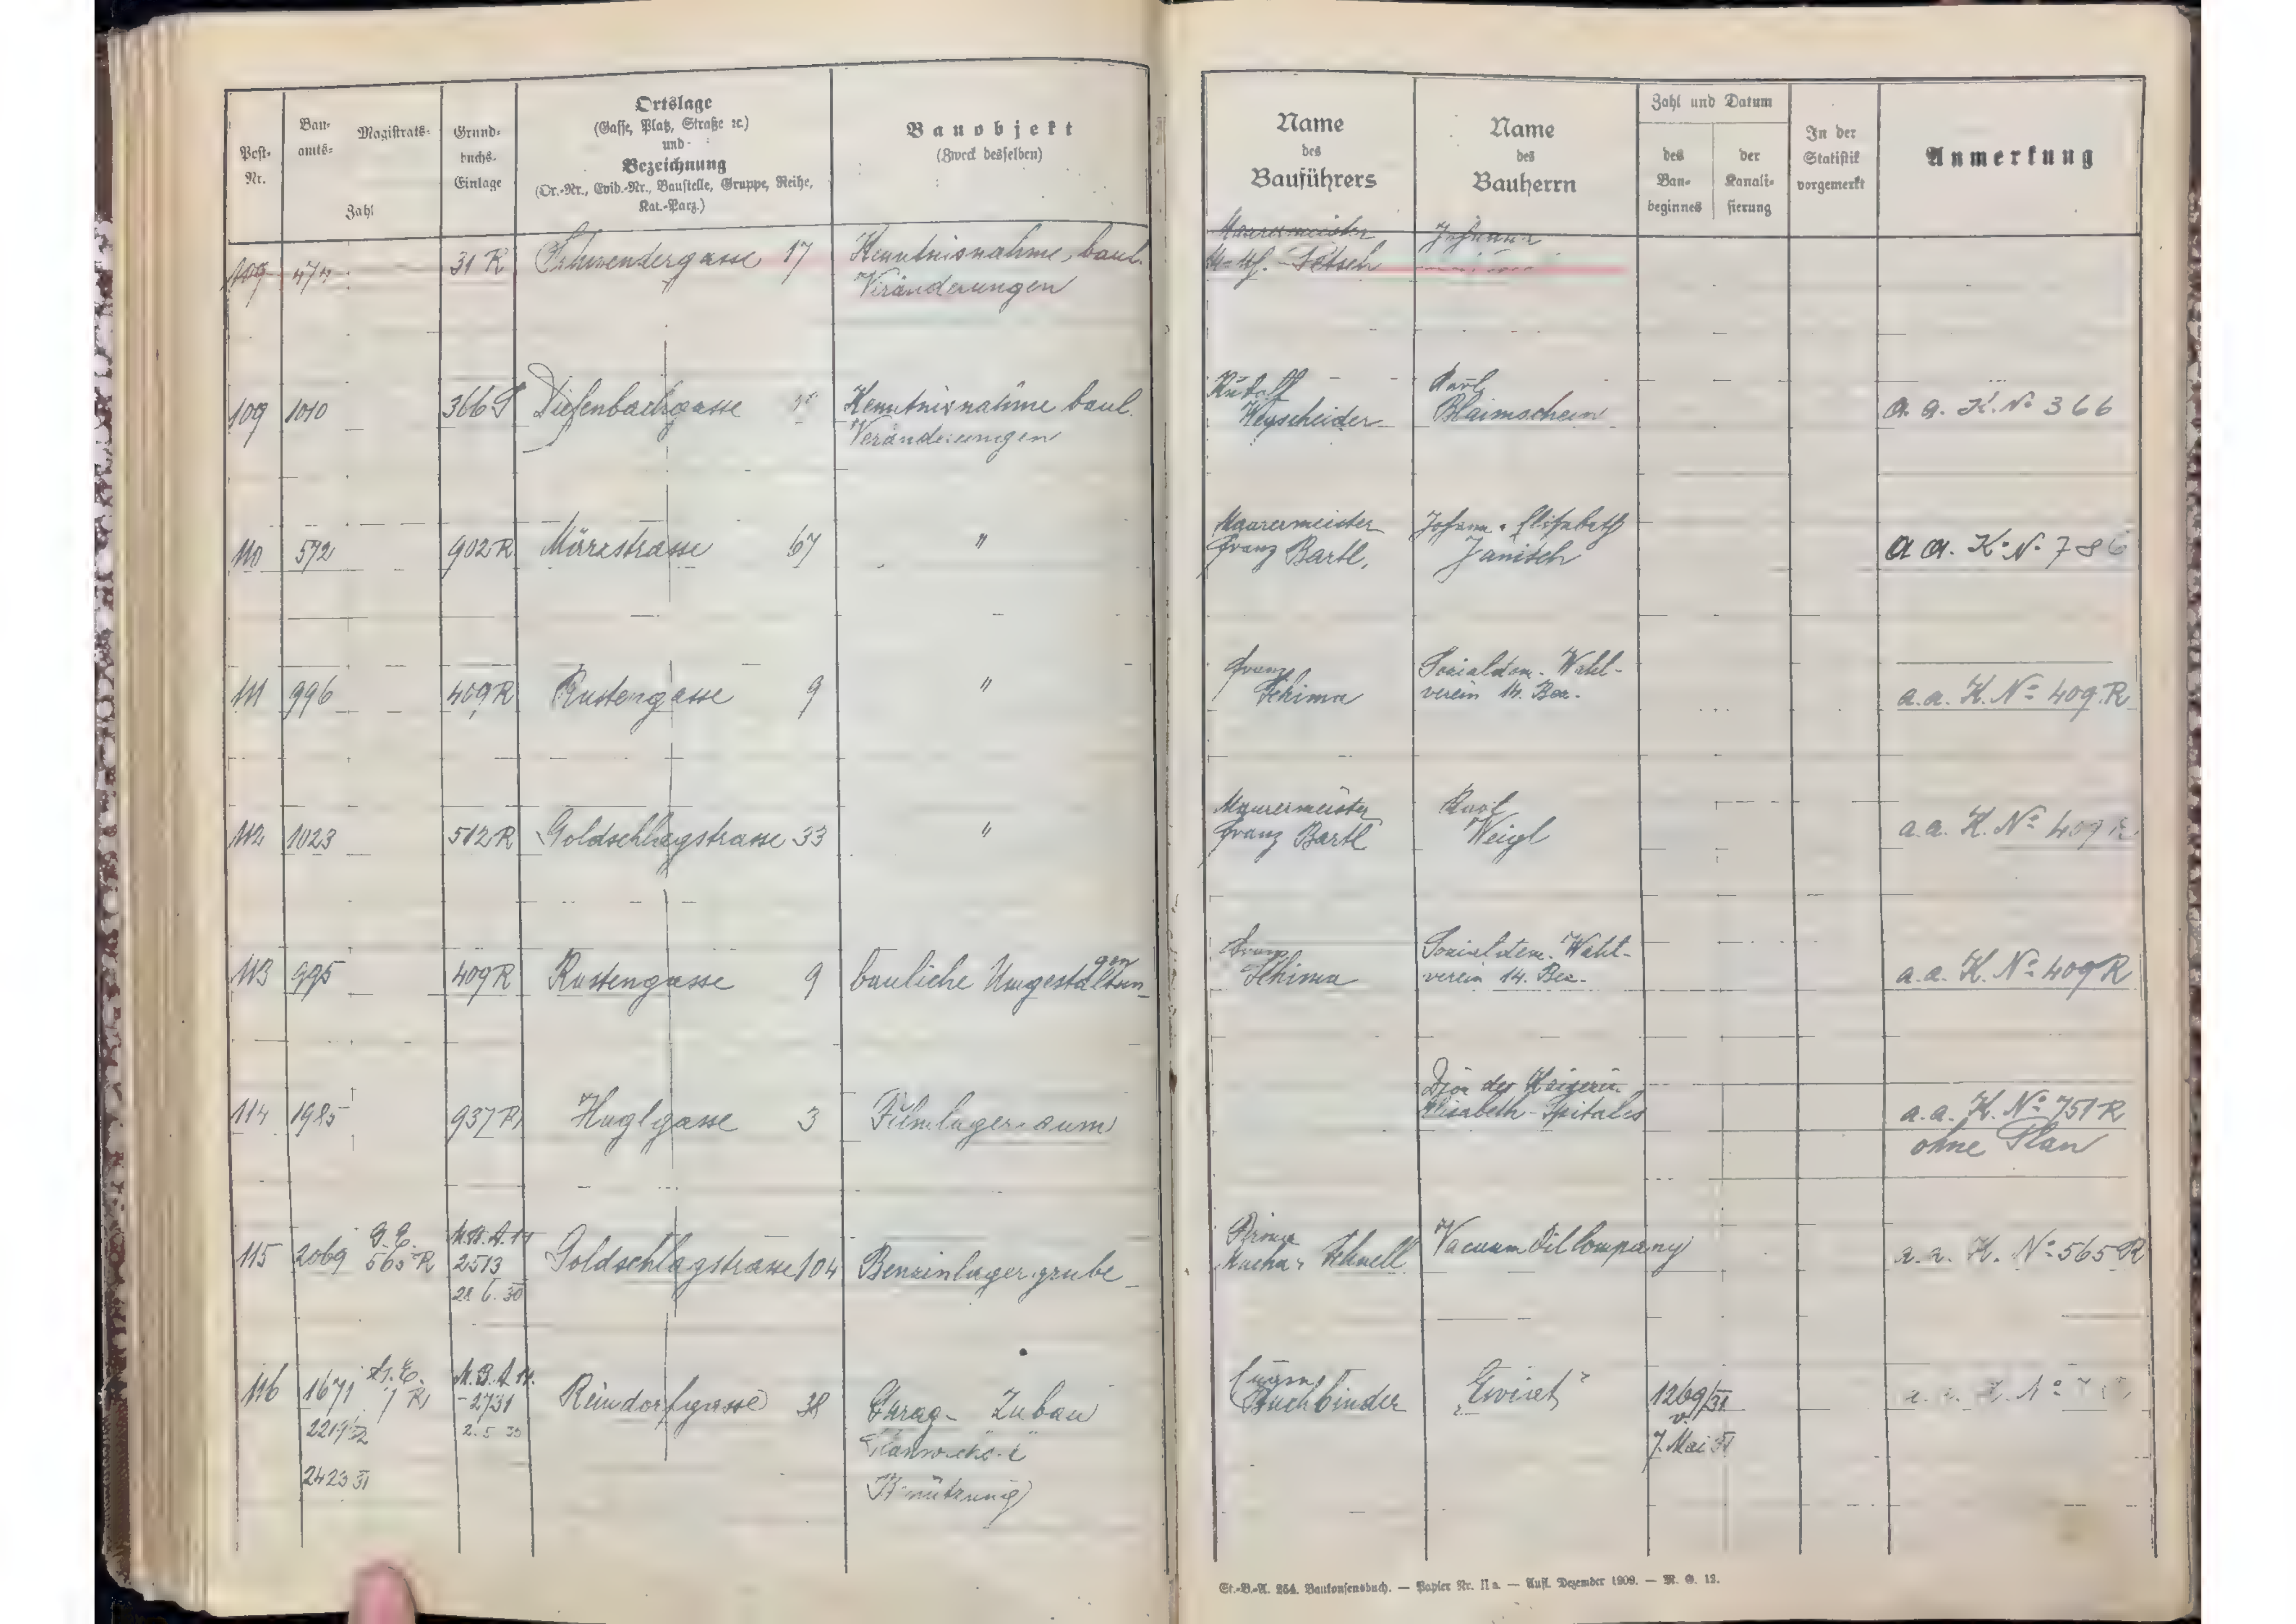 Post-
Nr.
Bau-
amts-
Magistrats-
Zahl
Grund-
buchs-
Einlage
Ortslage
(Gasse, Platz, Straße ꝛc.)
und
Bezeichnung
(Or.-Nr., Evid.-Nr., Baustelle, Gruppe, Reihe,
Kat.-Parz.)
Bauobjekt
(Zweck desselben)
Name
des
Bauführers
Name
des
Bauherrn
Zahl und Datum
des
Bau-
beginnes
der
Kanali-
sierung
In der
Statistik
vorgemerkt
Anmerkung
109 474 31 R Schwendergasse 17 Kenntnisnahme baul.
Veränderungen
Maurermeister Johann
109 1010 366 Diefenbachgasse Kenntnisnahme baul.
Veränderungen
Rudolf
Wegscheider
Karl
Blaimschein
a. a. K. No 366
110 572 902 R Märzstrasse 67 "
Maurermeister
Franz Bartl,
Johann u. Elisabeth
Janisch
a a. K. No 786
111 996 409 R Rustengasse 9 "
Franz
Schima
Sozialdem. Wahl-
verein 14. Bez.
a. a. K. No 409 R
112 1023 512 R Goldschlagstrasse 33 "
Maurermeister
Franz Bartl
Karl
Weigl
a. a. K. No 409 R
113 995 409 R Rustengasse 9 bauliche Umgestaltun-
gen
Franz
Schima
Sozialdem. Wahl-
verein 14. Bez.
a. a. K. No 409 R
114 1985 937 R Huglgasse 3 Filmlagerraum
Dion der Kaiserin
Elisabeth-Spitales
a. a. K. No 751 R
ohne Plan
115 2069 G. E. 565 R M. B. A. 14
2513
28. 6. 30
Goldschlagstrasse 104 Benzinlagergrube
Firma
Schnell
Vacuum Oil Company
a. a. K. No 565 R
116 1671 G. E. 7 R M. B. A. 14.
2731
2. 5 30
Reindorfgasse 38 Garag- Zubau
2219
2423 31
Eugen
Buchbinder
1269/31
v.
7. Mai 31
a. a. K. No
St.-B.-A. 254. Baukonsensbuch. — Papier Nr. II a. — Aufl. Dezember 1909. — M. G. 12.